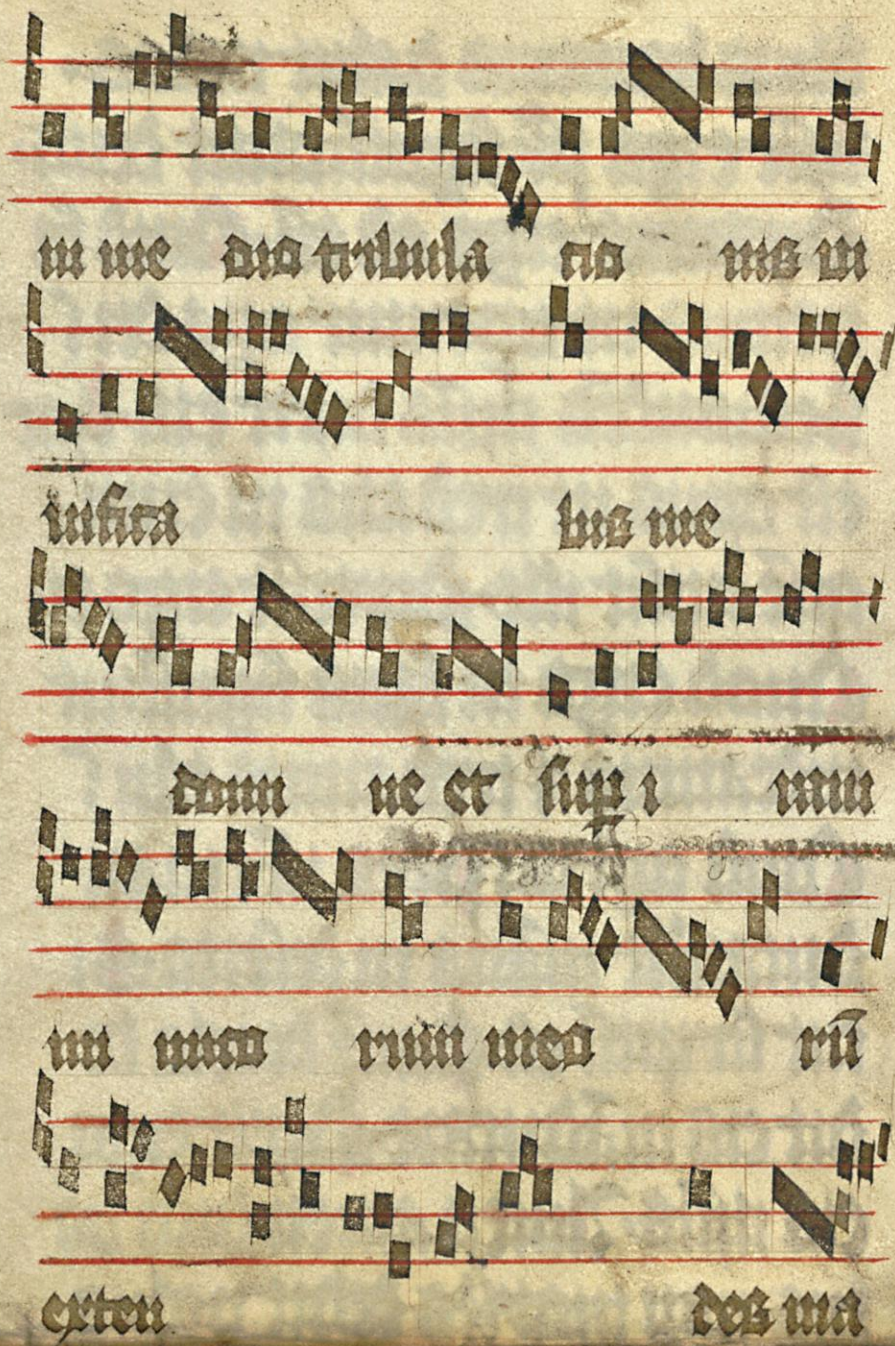 in me dio tribula tio nis vi
uifica bis me
domi ne et sup i ram
ini mico rum meo rū
exten des ma